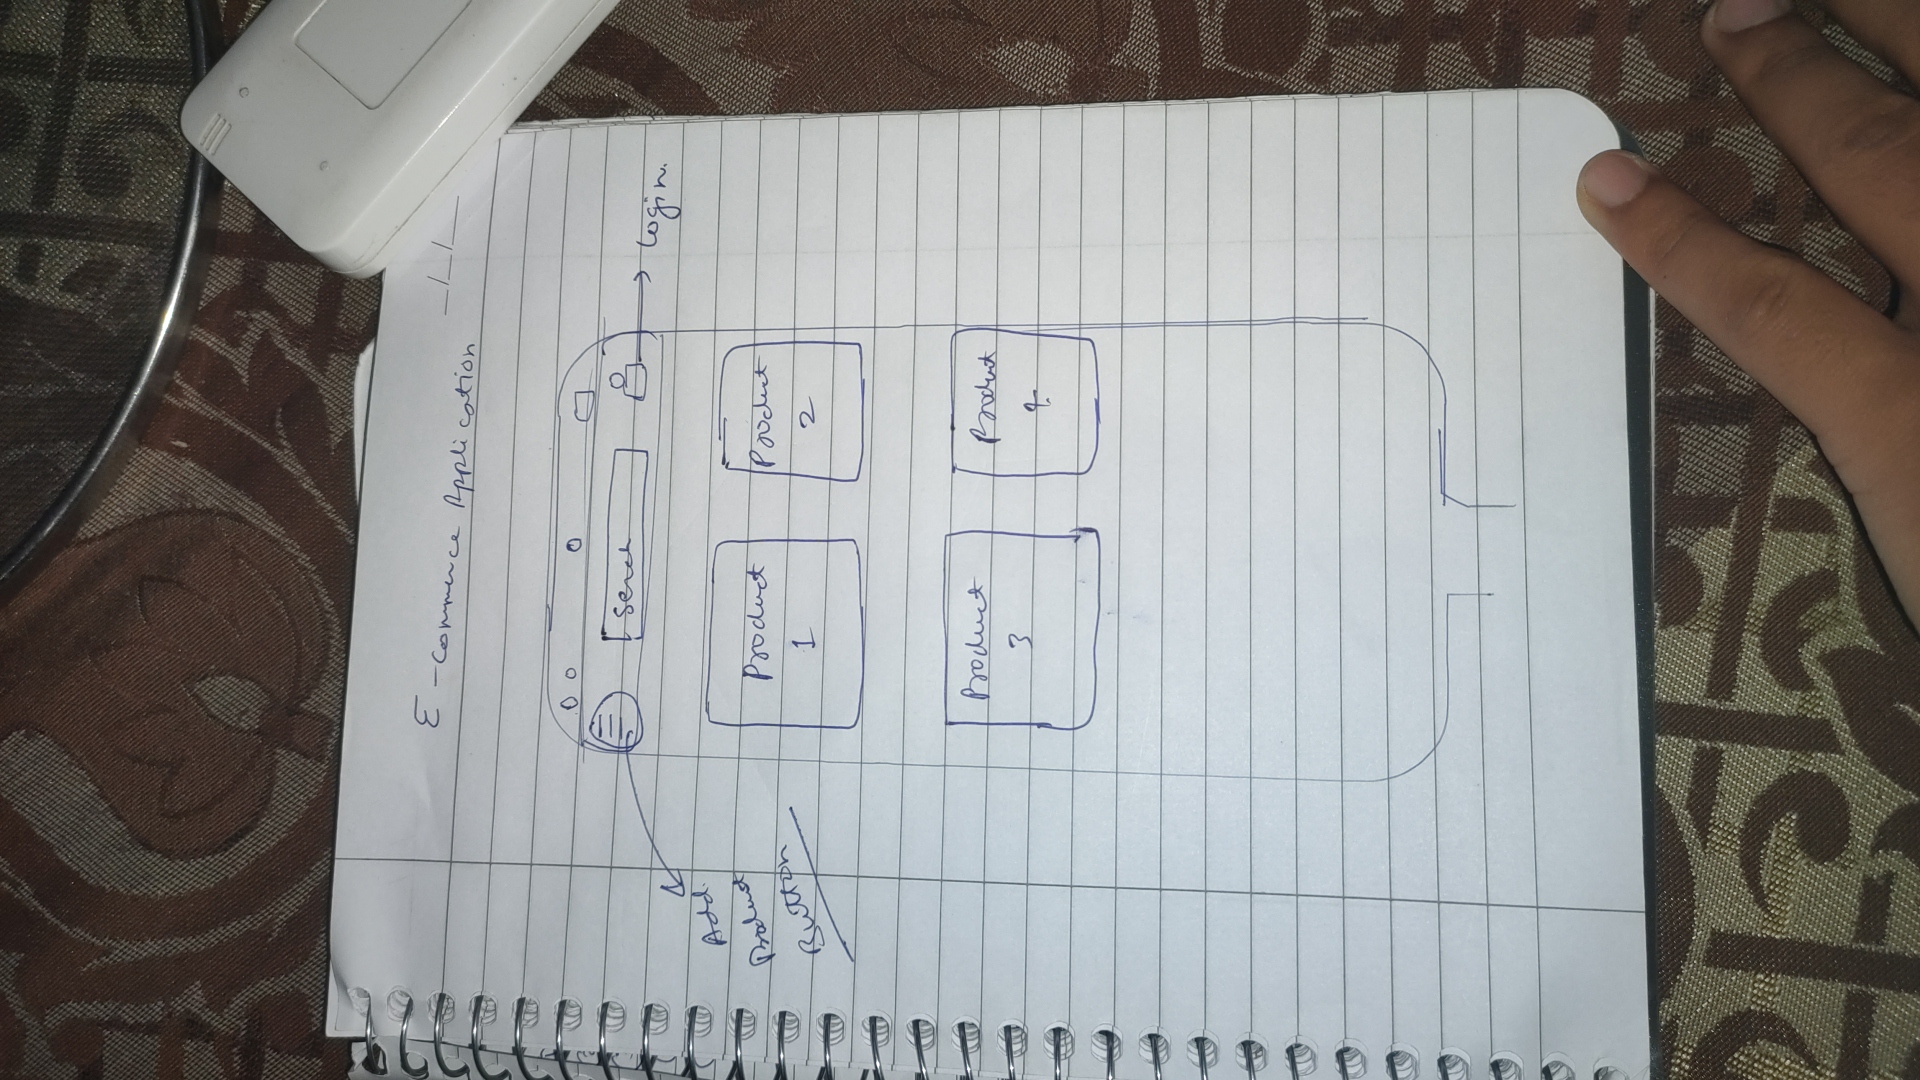 E-commerce Application
_/_/__
Serch
Login.
Add.
Product
Button
Product
1
Product
2
Product
3
Product
4